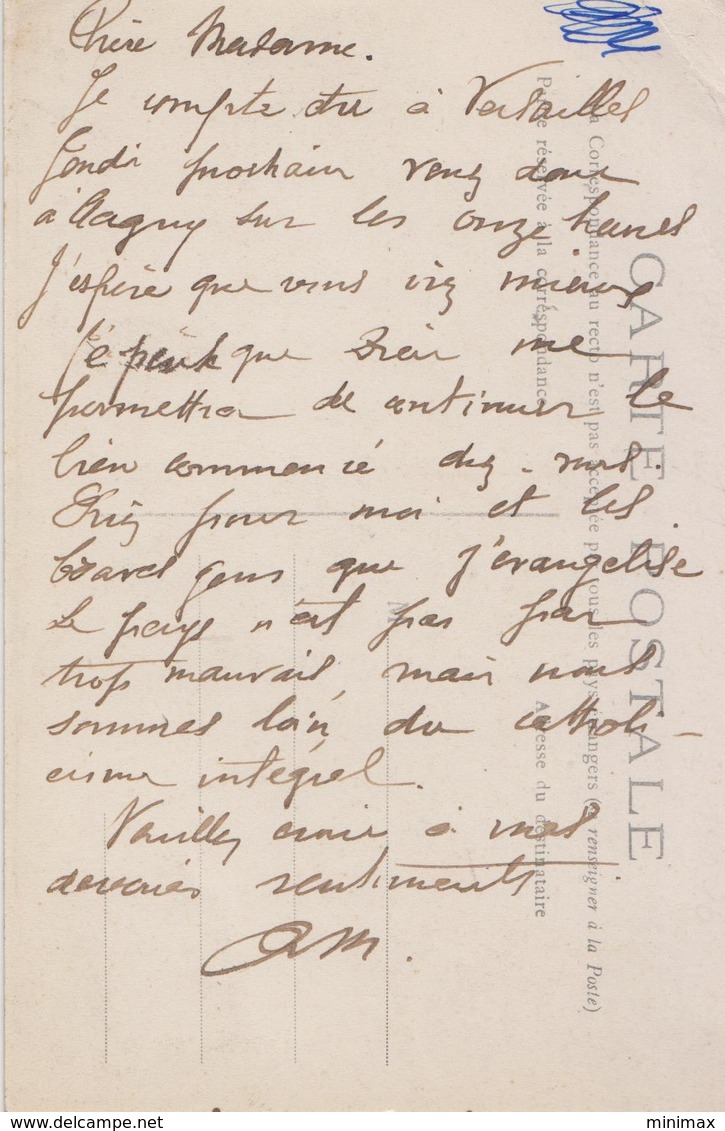 Chère Madame.
Je compte être à Versailles
Lundi prochain venez donc
à Gagny sur les onze heures
J'espère que vous irez mieux
Je que Dieu me
permettra de continuer le
bien commencé chez-vous.
Priez pour moi et les
braves gens que j'évangélise
Le pays n'est pas par
trop mauvais, mais nous
sommes loin du catholi-
cisme intégral.
Veuillez croire à mes
dévoués sentiments
CARTE POSTALE
La Correspondance au recto n'est pas acceptée par tous les pays étrangers (Se renseigner à la Poste)
Partie réservée à la correspondance
Adresse du destinataire
M
delcampe.net
minimax